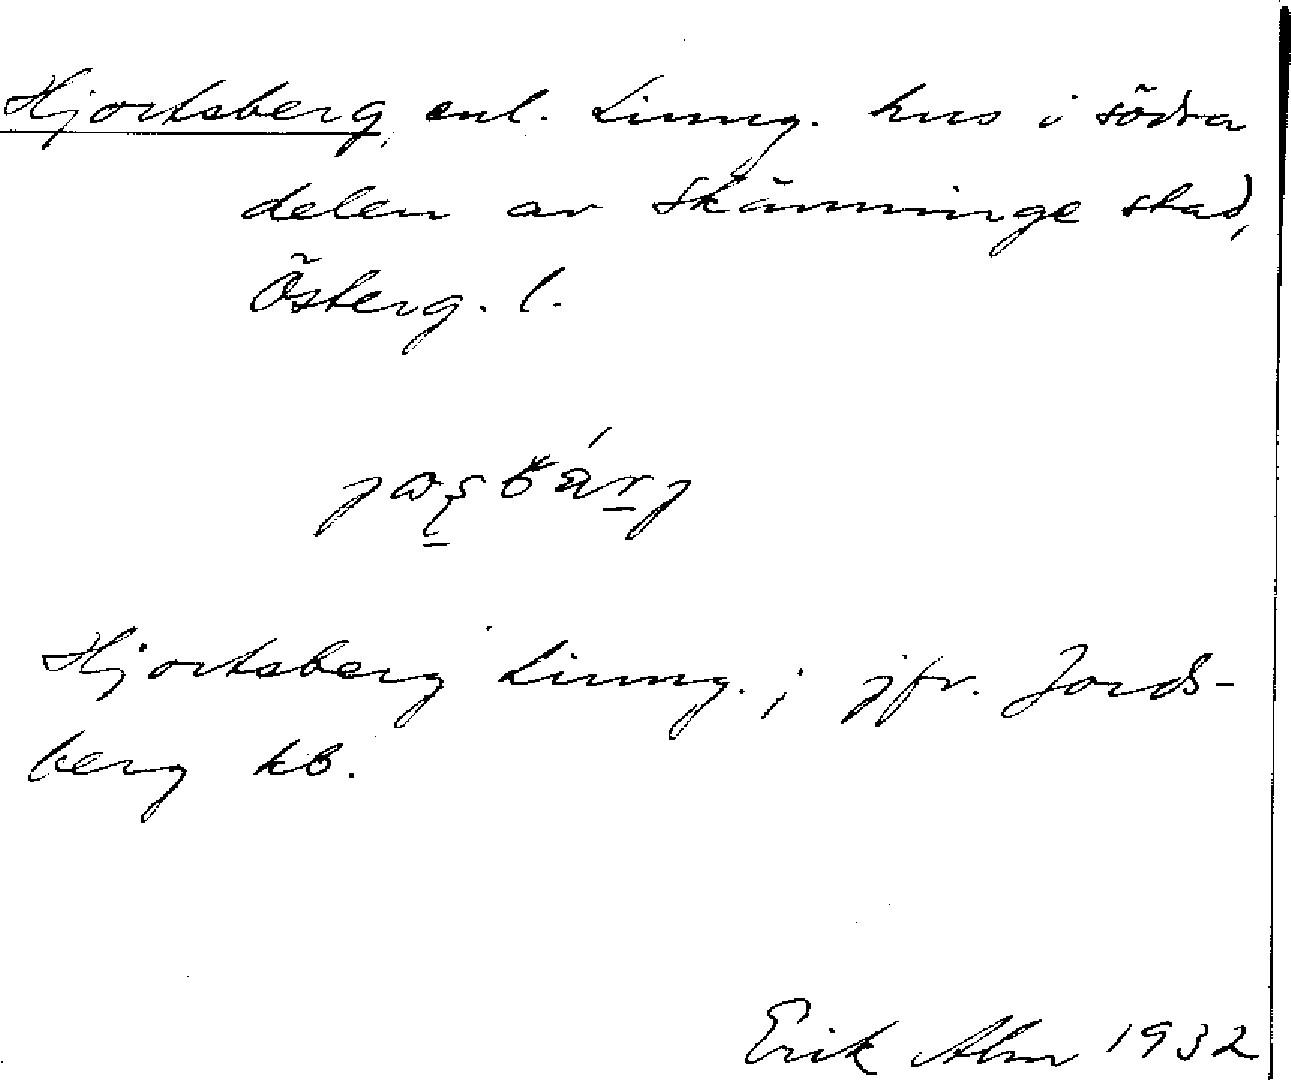 Hjortsberg, enl. Ljung. hus i södra
delen av Skänninge stad,
Österg. l.
Hjortsberg Ljung.; jfr. Jords-
berg kB.
Erik Alm 1932